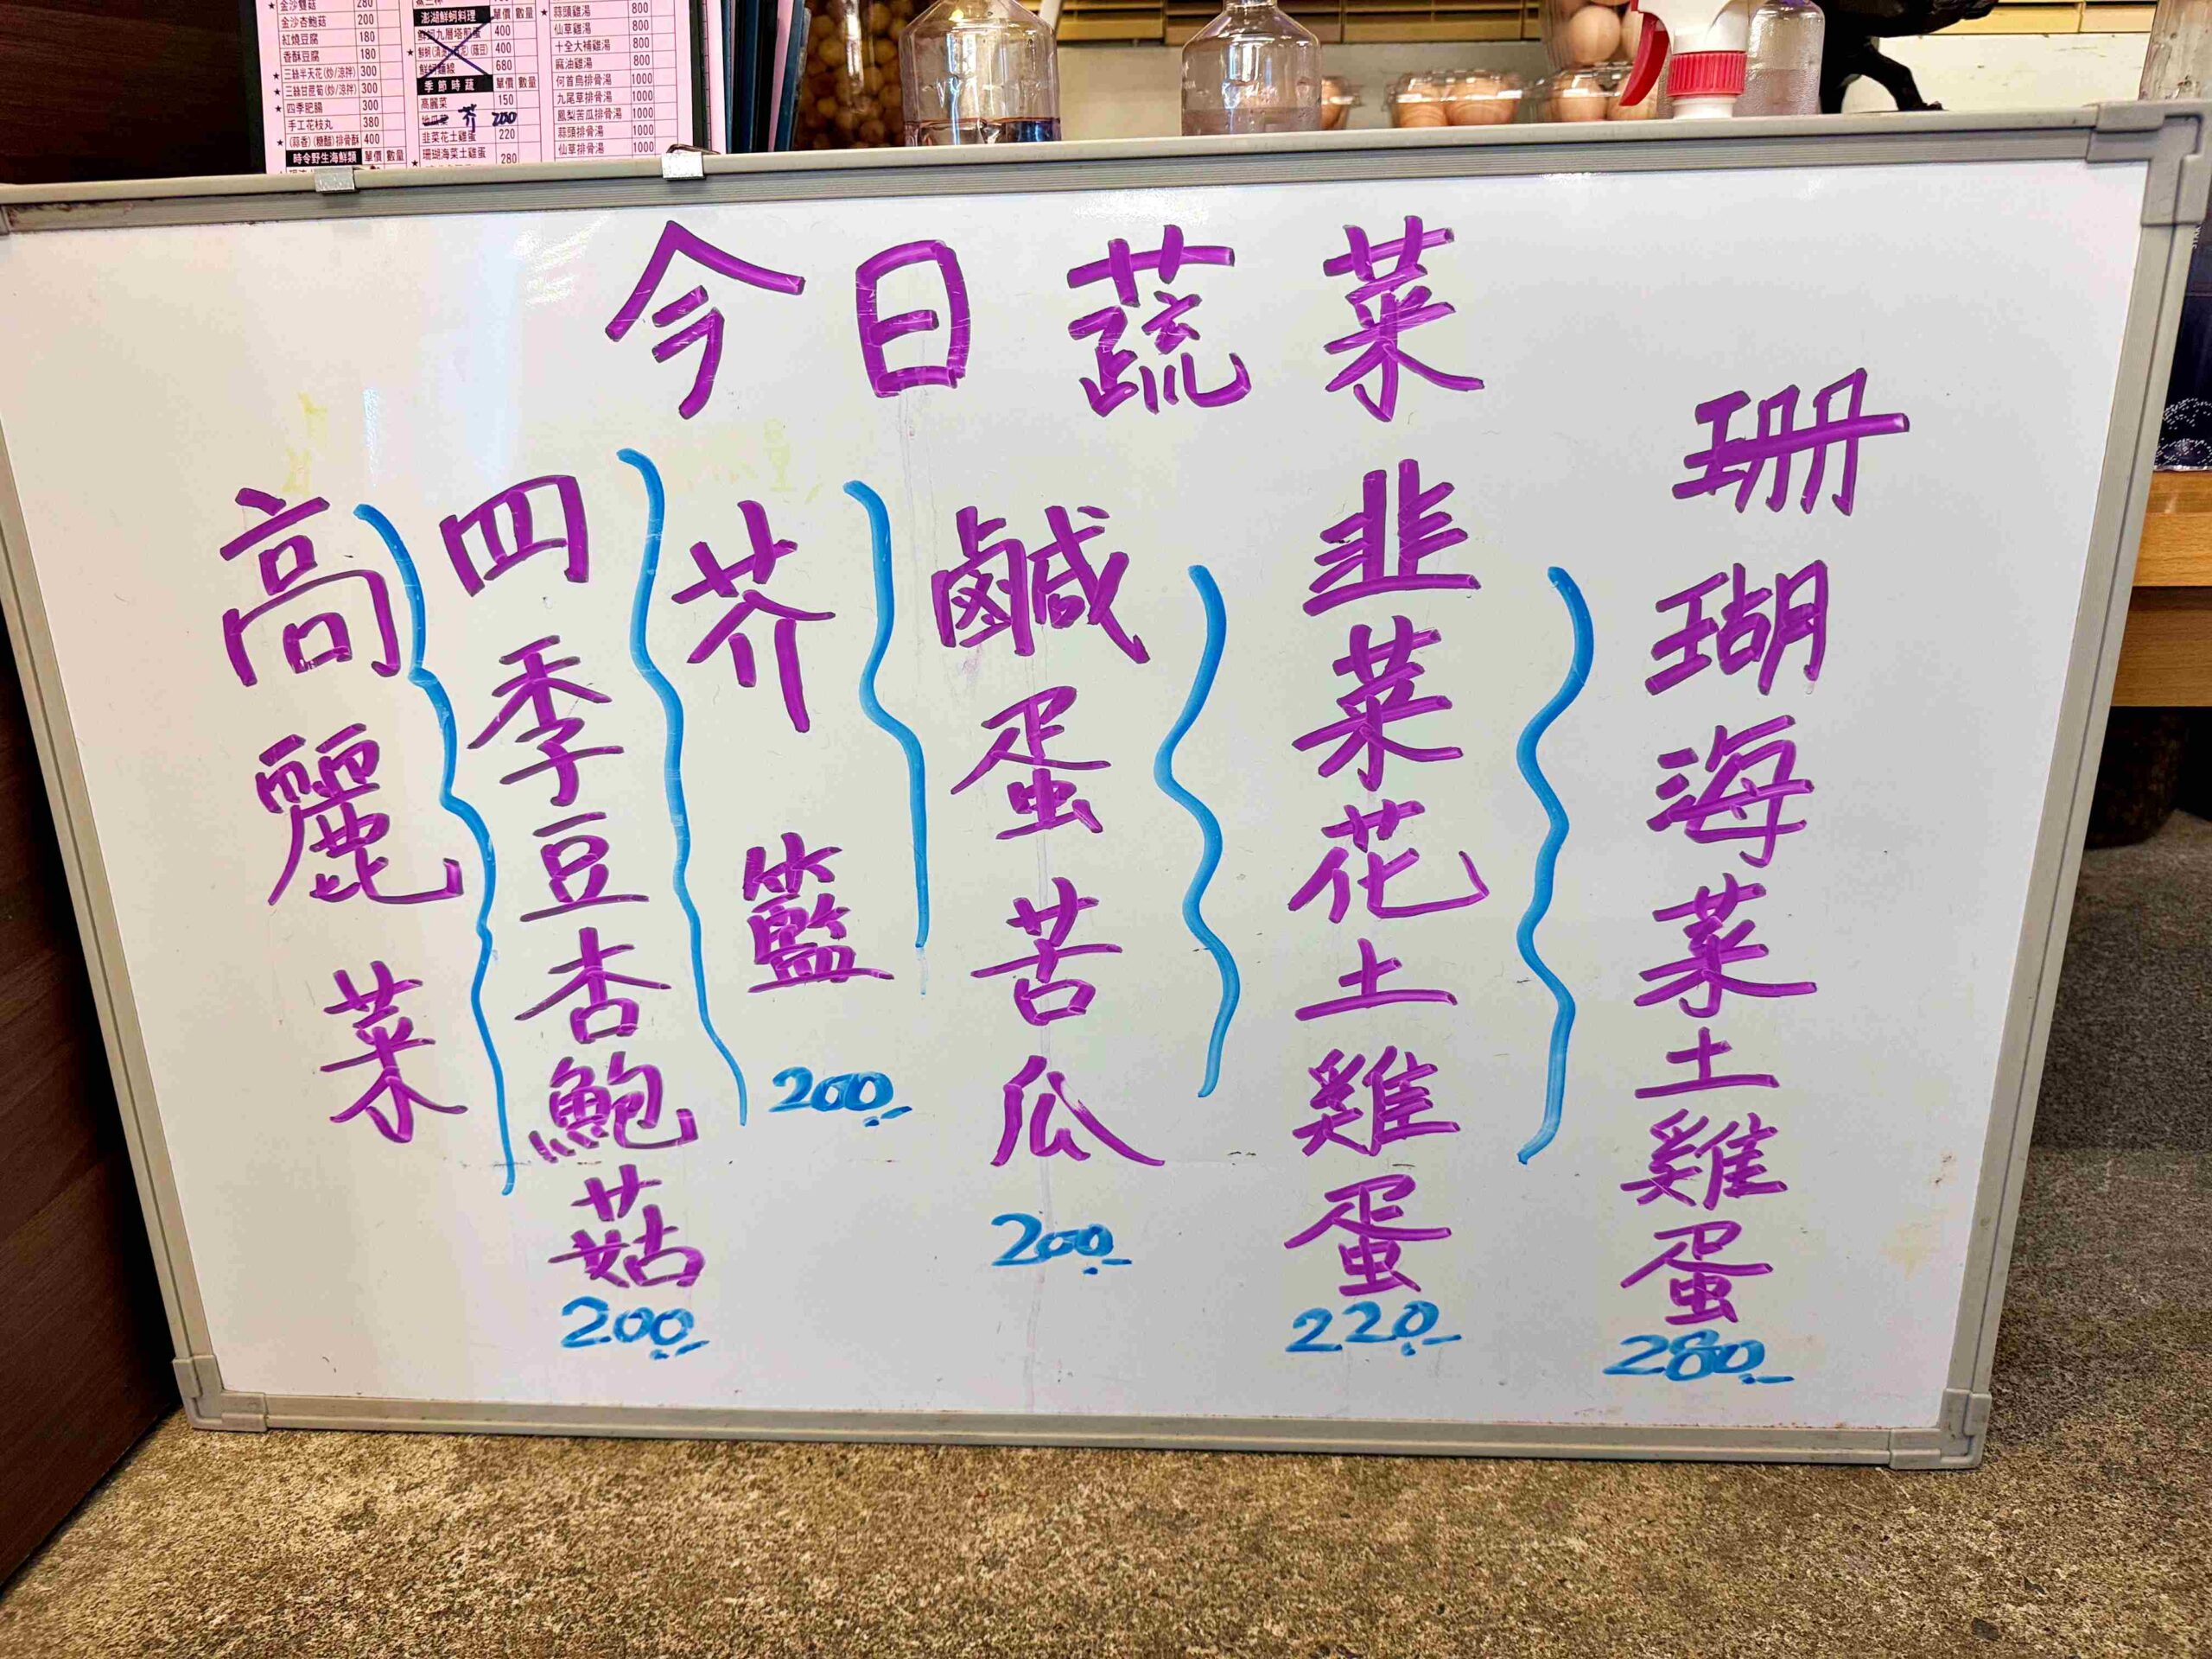 金沙杏鮑菇 200
紅燒豆腐 180
香酥豆腐 180
★三絲半天花(炒/涼拌) 300
★三絲甘蔗筍(炒/涼拌) 300
★四季肥腸 300
手工花枝丸 380
★(蒜香)(糖醋)排骨酥 400
時令野生海鮮類 單價 數量
澎湖鮮蚵料理 單價 數量
400
400
680
季節時蔬 單價 數量
高麗菜 150
芥 200
韭菜花土雞蛋 220
珊瑚海菜土雞蛋 280
★蒜頭雞湯 800
仙草雞湯 800
十全大補雞湯 800
麻油雞湯 800
何首烏排骨湯 1000
九尾草排骨湯 1000
鳳梨苦瓜排骨湯 1000
蒜頭排骨湯 1000
仙草排骨湯 1000
今日蔬菜
珊瑚海菜土雞蛋
280.-
韭菜花土雞蛋
220.-
鹹蛋苦瓜
200.-
芥籃
200.-
四季豆杏鮑菇
200.-
高麗菜